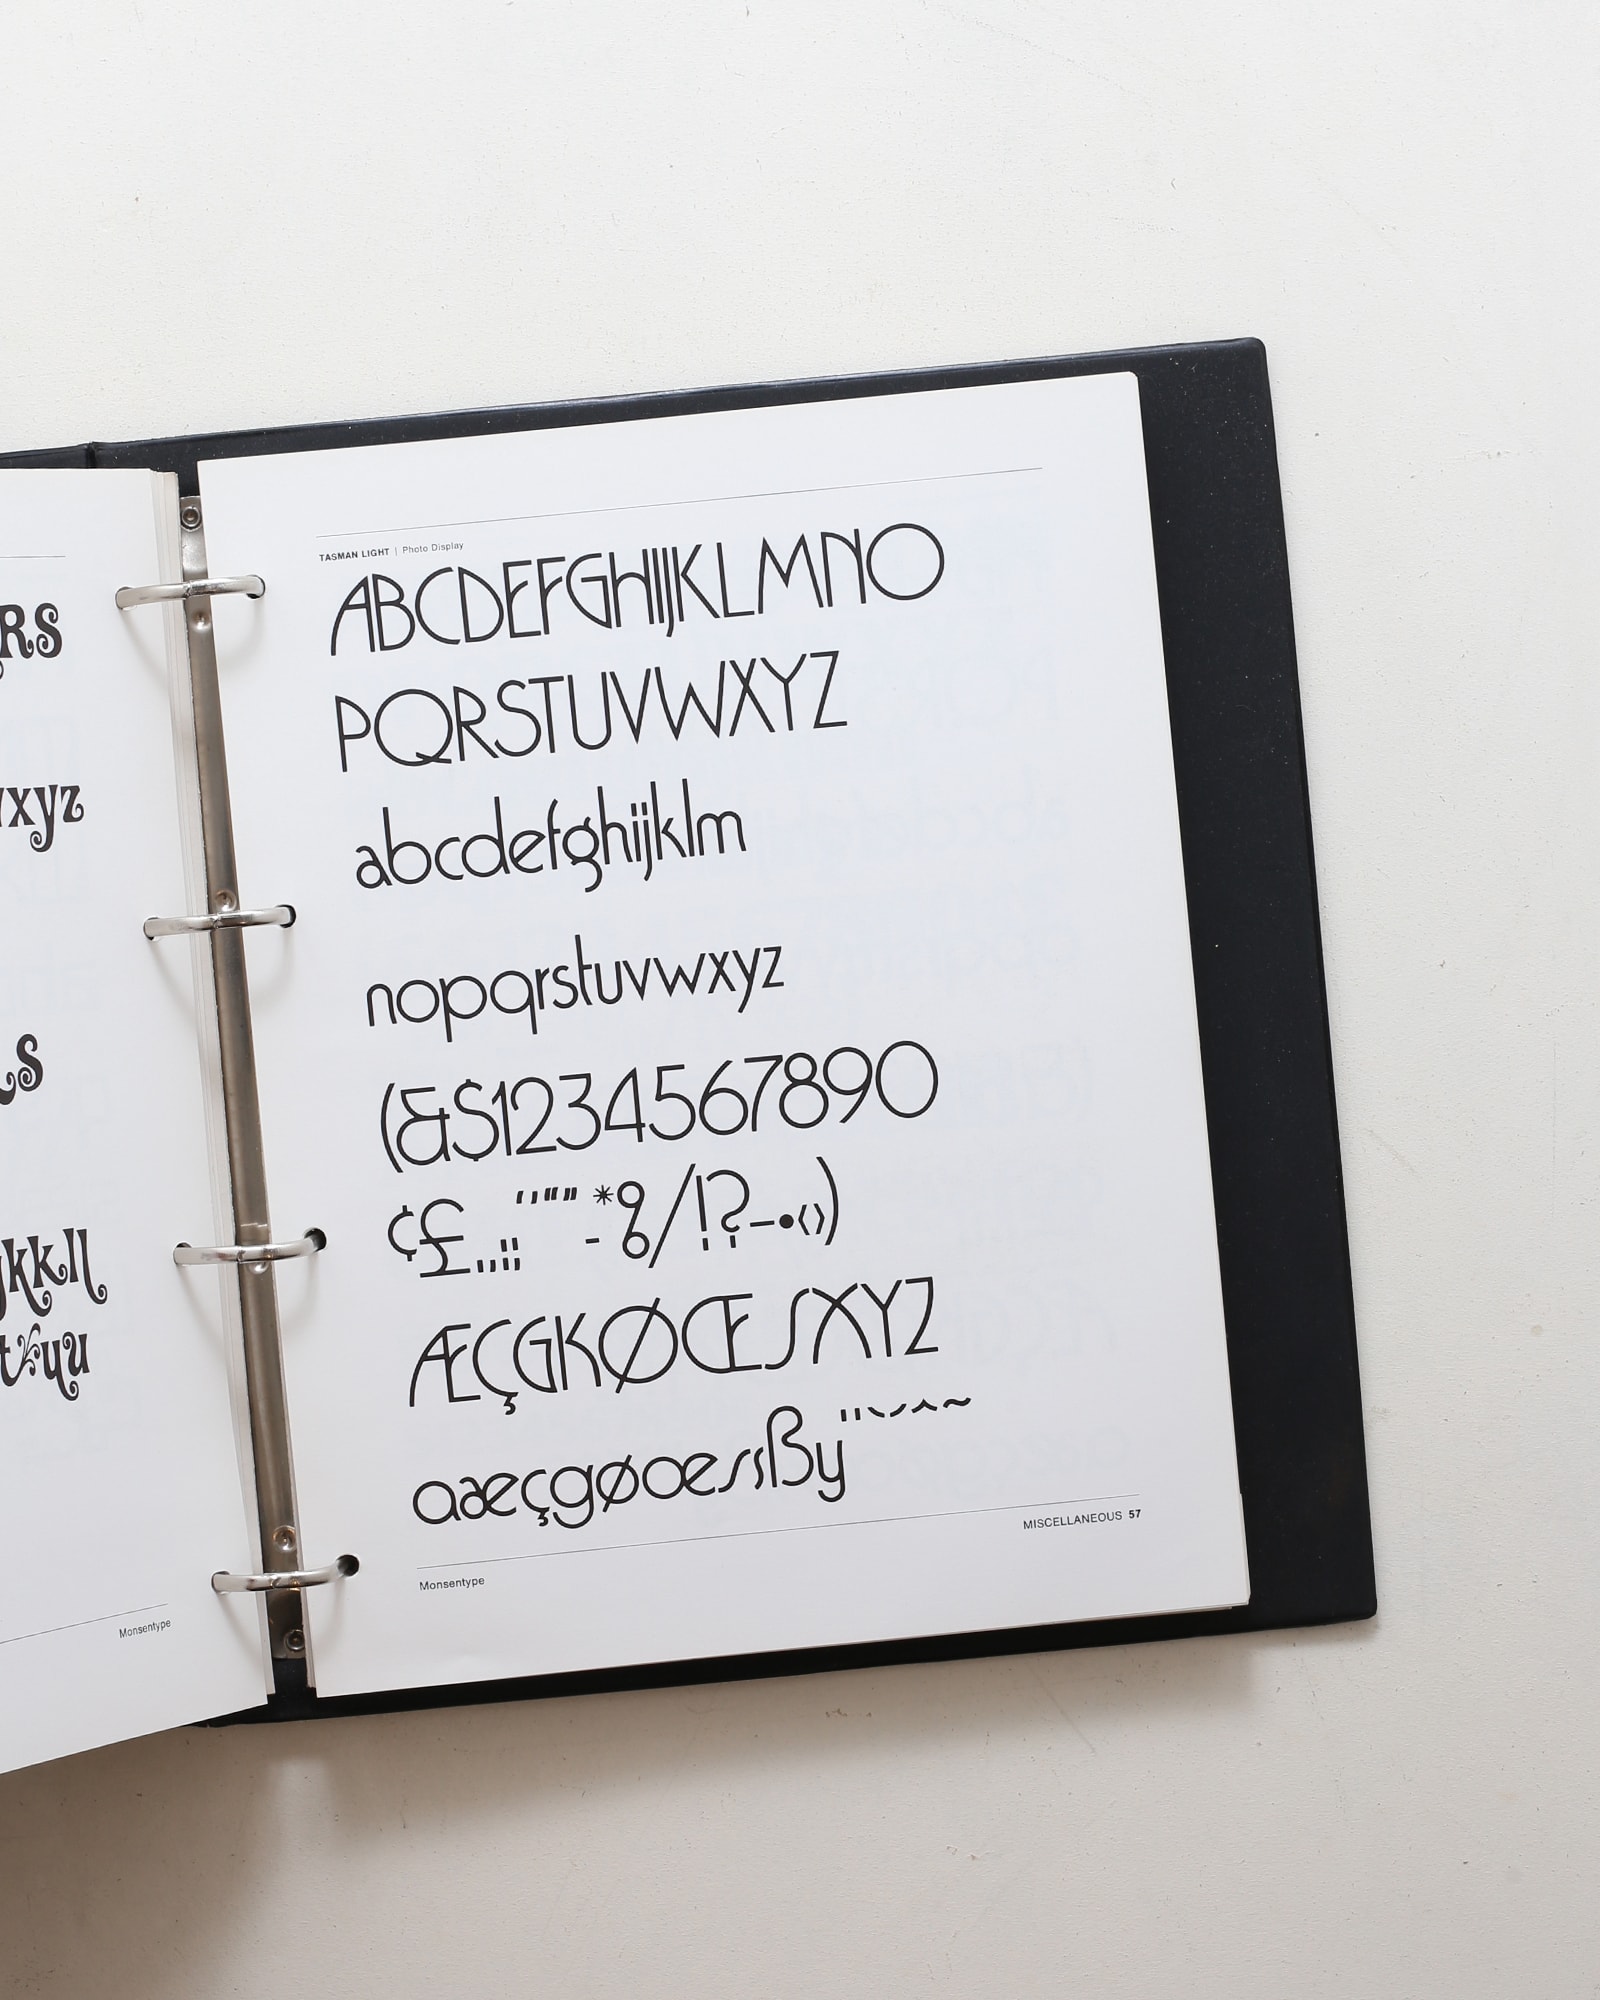 RS
xyz
S
kkll
tryuu
Monsentype
TASMAN LIGHT | Photo Display
ABCDEFGHIJKLMNO
PQRSTUVWXYZ
abcdefghijklm
nopqrstuvwxyz
(&$1234567890
¢£.,:;‘’“”-*%/!?–•‹›)
ÆÇGKØŒSXYZ
aæçgøœssßy¨`´ˆ˜
MISCELLANEOUS 57
Monsentype